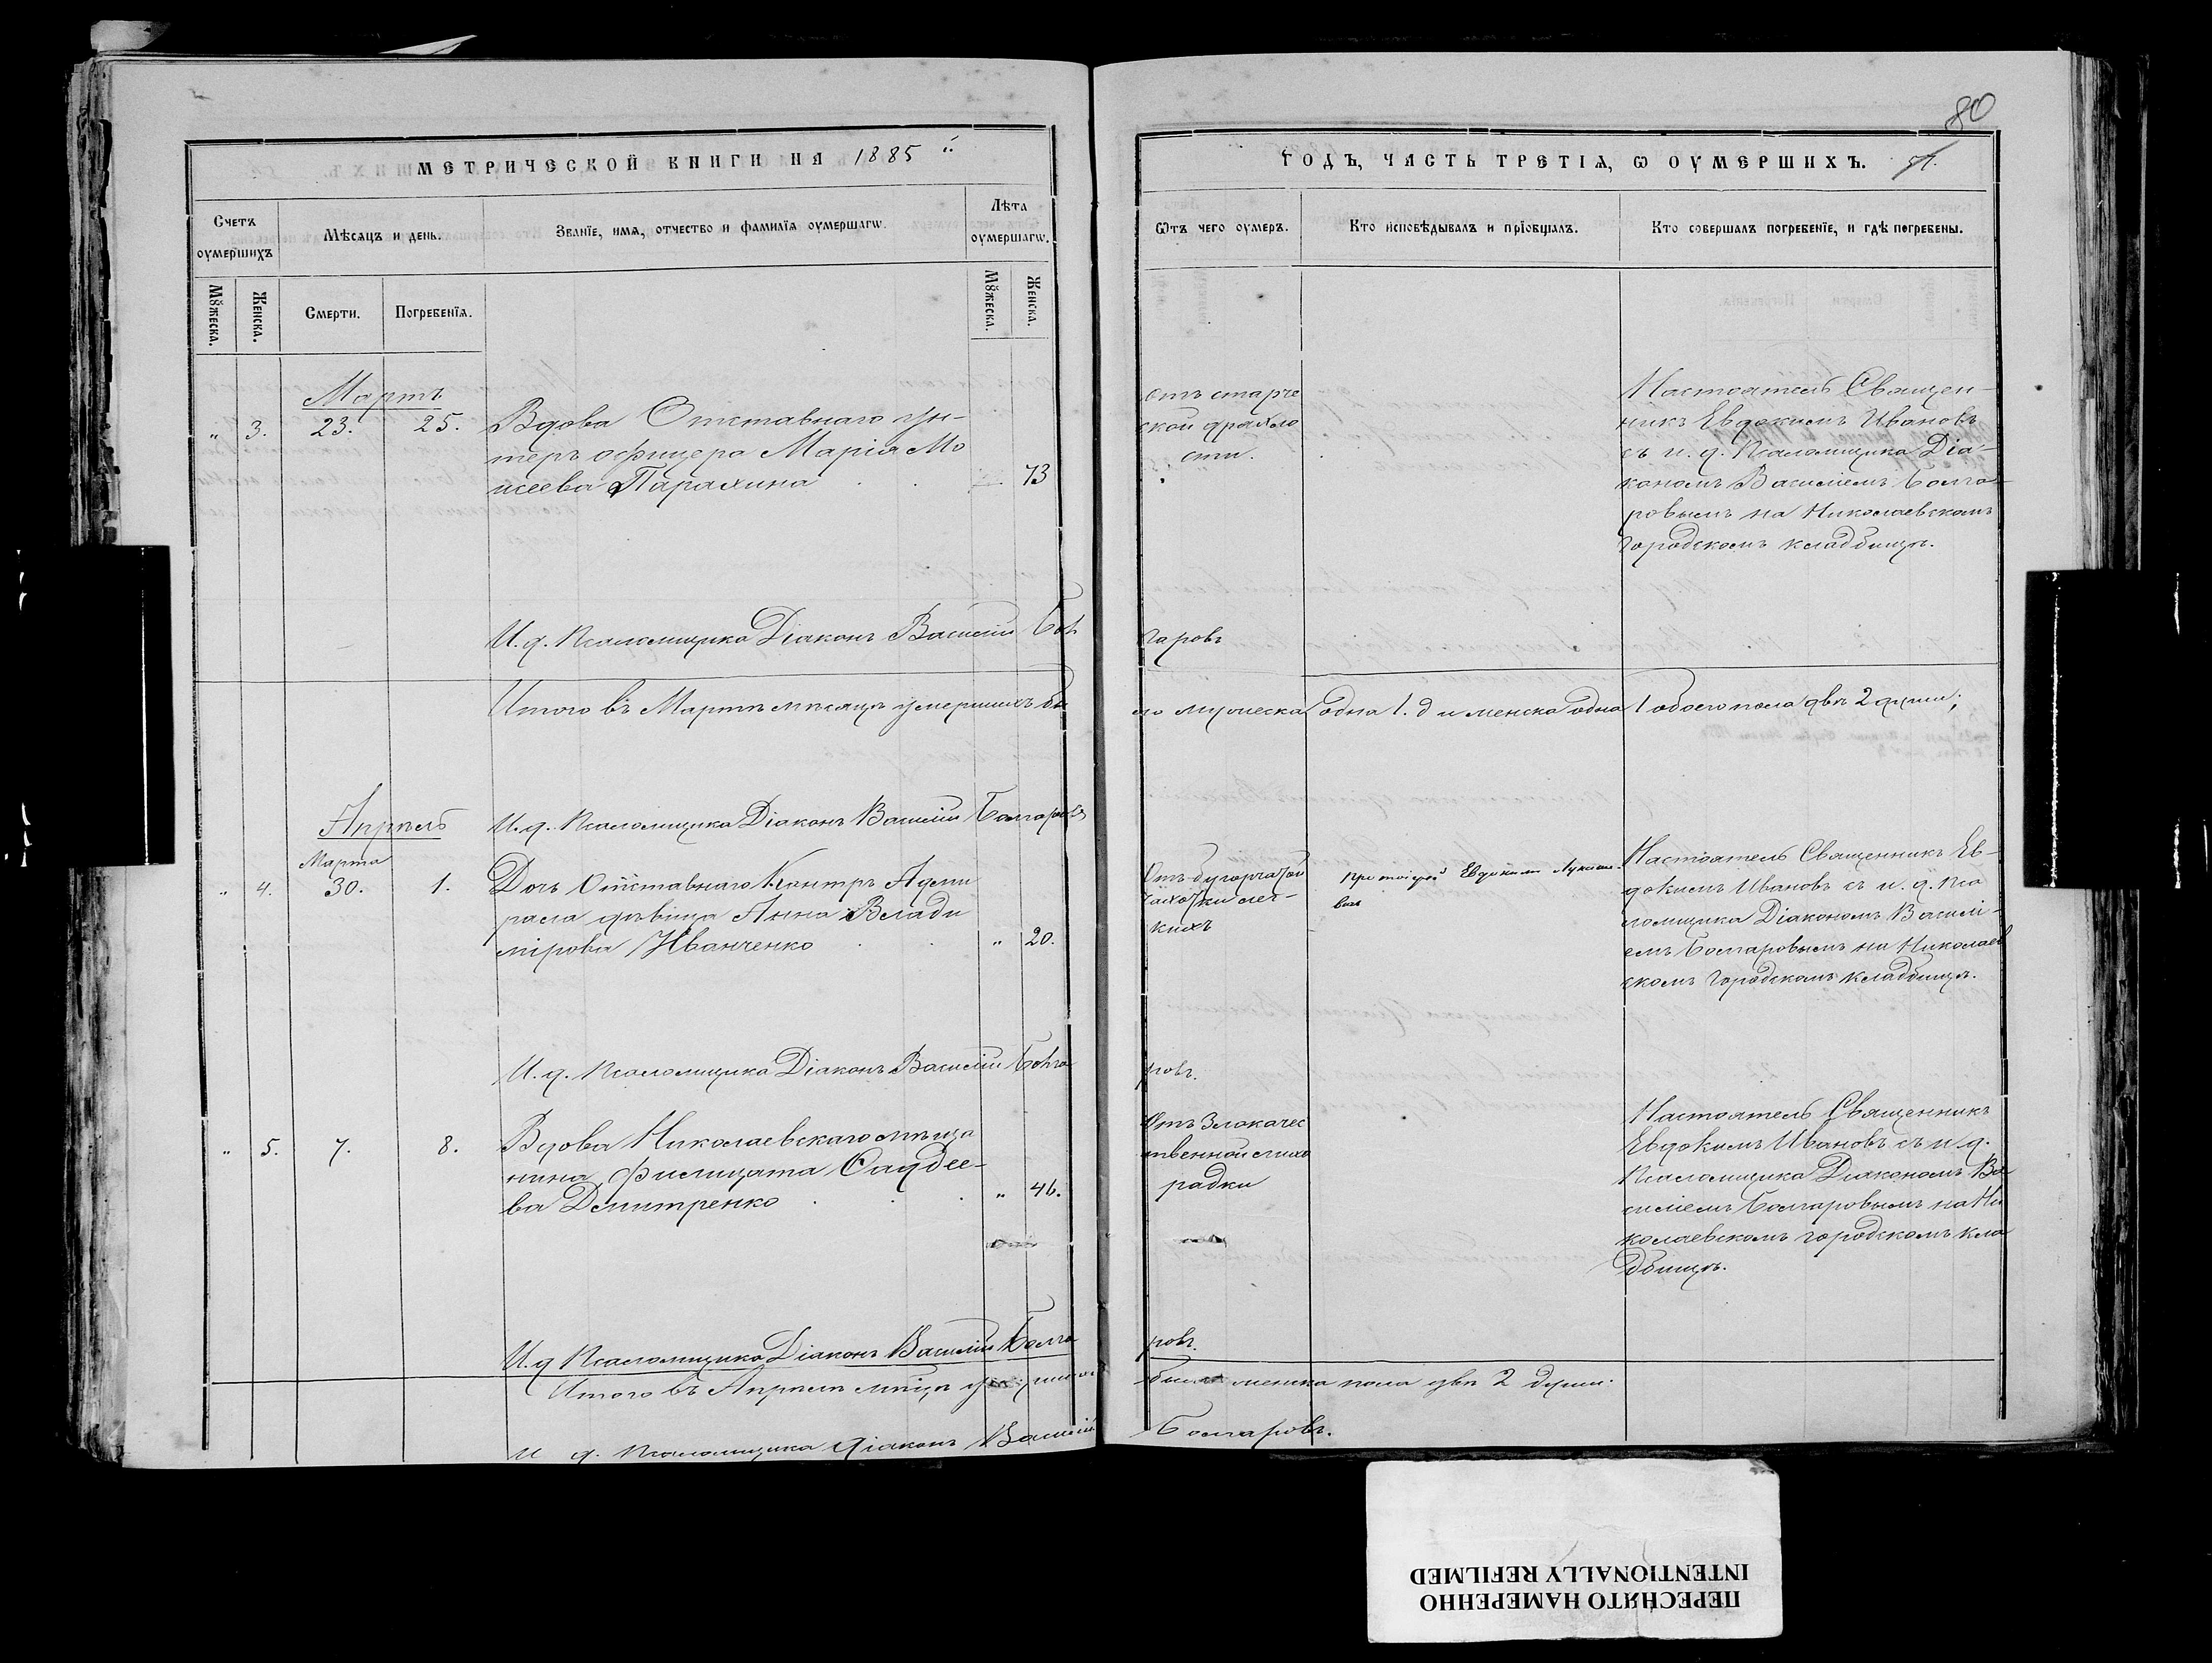 80
МЕТРИЧЕСКОЙ КНИГИ НА 1885
ГОДЪ, ЧАСТЬ ТРЕТІЯ, Ѡ ОУМЕРШИХЪ.
Счетъ оумершихъ
Мѣсяцъ и день.
Званїе, имя, отчество и фамилїя оумершагѡ.
Лѣта оумершагѡ.
Мꙋжеска.
Женска.
Смерти.
Погребенїя.
Мꙋжеска.
Женска.
Ѿтъ чего оумеръ.
Кто исповѣдывалъ и прїобщалъ.
Кто совершалъ погребенїе, и гдѣ погребены.
Мартъ
" 3. 23. 25.
Вдова Отставнаго ун-
теръ офицера Марія Мо
исеева Парахина 73
Отъ старче
ской дряхло
сти.
Настоятель Священ-
никъ Евдокимъ Ивановъ
съ и. д. Псаломщика Діа-
кономъ Василіемъ Болга-
ровымъ на Николаевскомъ
городскомъ кладбищѣ.
И. д. Псаломщика Діаконъ Василій Бол
гаровъ
Итого въ Мартѣ мѣсяцѣ умершихъ бы
ло мужеска одна 1. д и женска одна 1 обоего пола двѣ 2 души;
Апрѣль
И. д. Псаломщика Діаконъ Василій Болгаровъ
Марта
" 4. 30. 1.
Дочь Отставнаго Контръ Адми
рала дѣвица Анна Влади
мірова Иванченко " 20.
Отъ бугорчатой
чахотки лег-
кихъ
Протоіерей Евдокимъ
Настоятель Священникъ Ев-
докимъ Ивановъ съ и. д. Пса
ломщика Діакономъ Васілі-
емъ Болгаровымъ на Николаев
скомъ городскомъ кладбищѣ.
И. д. Псаломщика Діаконъ Василій Болга
ровъ.
" 5. 7. 8.
Вдова Николаевскаго мѣща
нина Филицата Фаддее-
ва Дмитренко " 46.
Отъ Злокачес
твенной лихо
радки
Настоятель Священникъ
Евдокимъ Ивановъ съ и д.
Псаломщика Діакономъ Ва
силіемъ Болгаровымъ на Ни
колаевскомъ городскомъ кла
дбищѣ.
И. д Псаломщика Діаконъ Василій Болга
ровъ.
Итого въ Апрѣлѣ мѣсцѣ
было женска пола двѣ 2 души.
И д. Псаломщика Діаконъ Василій
Болгаровъ.
ПЕРЕСНЯТО НАМЕРЕННО
INTENTIONALLY REFILMED